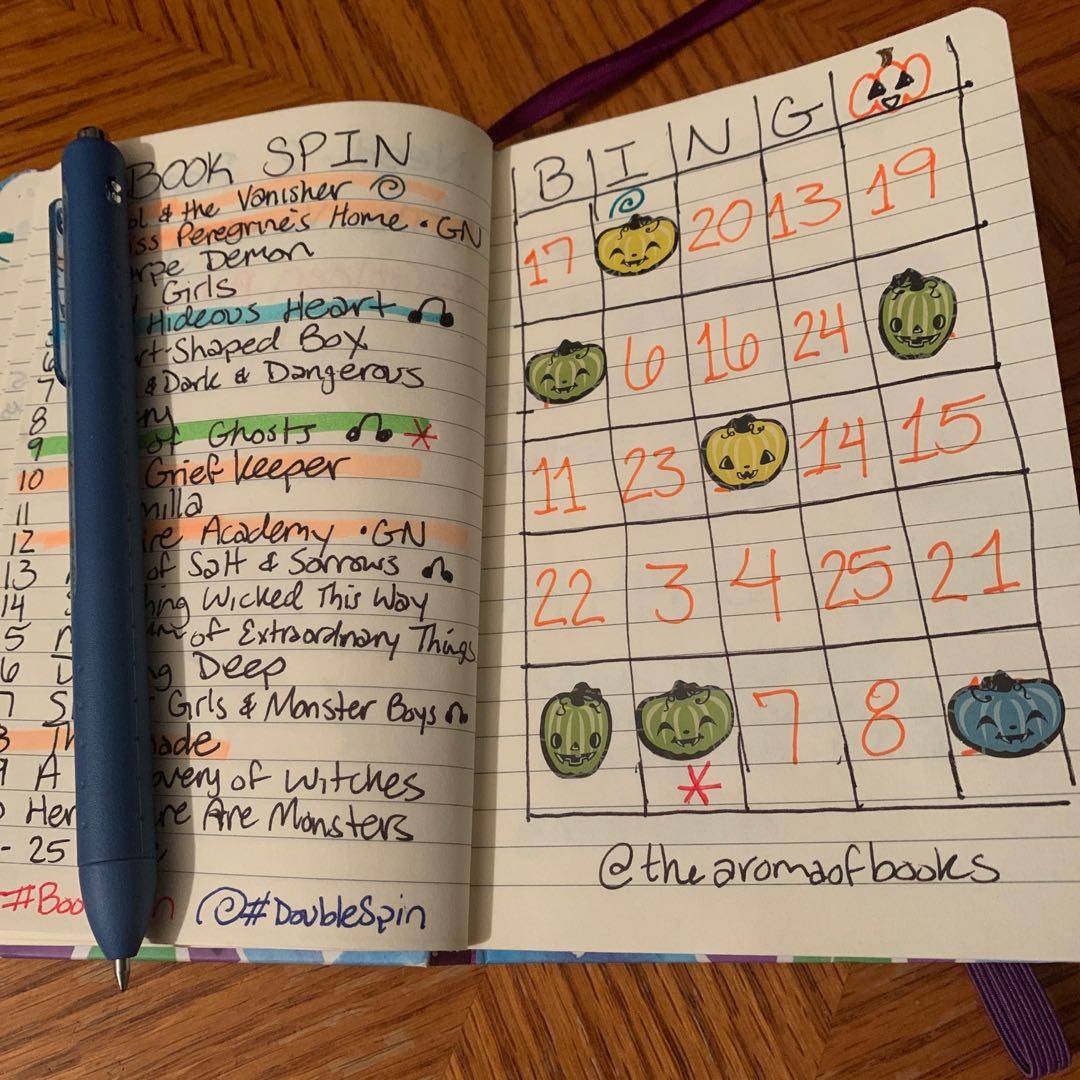 BOOK SPIN
& the Vanisher
Peregrine's Home • GN
Demon
Girls
Hideous Heart
6 Shaped Box
7 & Dark & Dangerous
8
9 of Ghosts *
10 Grief Keeper
11
12 Academy • GN
13 of Salt & Sorrows
14 Wicked This Way
of Extraordinary Things
Deep
Girls & Monster Boys
A of Witches
Are Monsters
- 25
@#DoubleSpin
B I N G
17 20 13 19
6 16 24
11 23 14 15
22 3 4 25 21
7 8
*
@thearomaofbooks